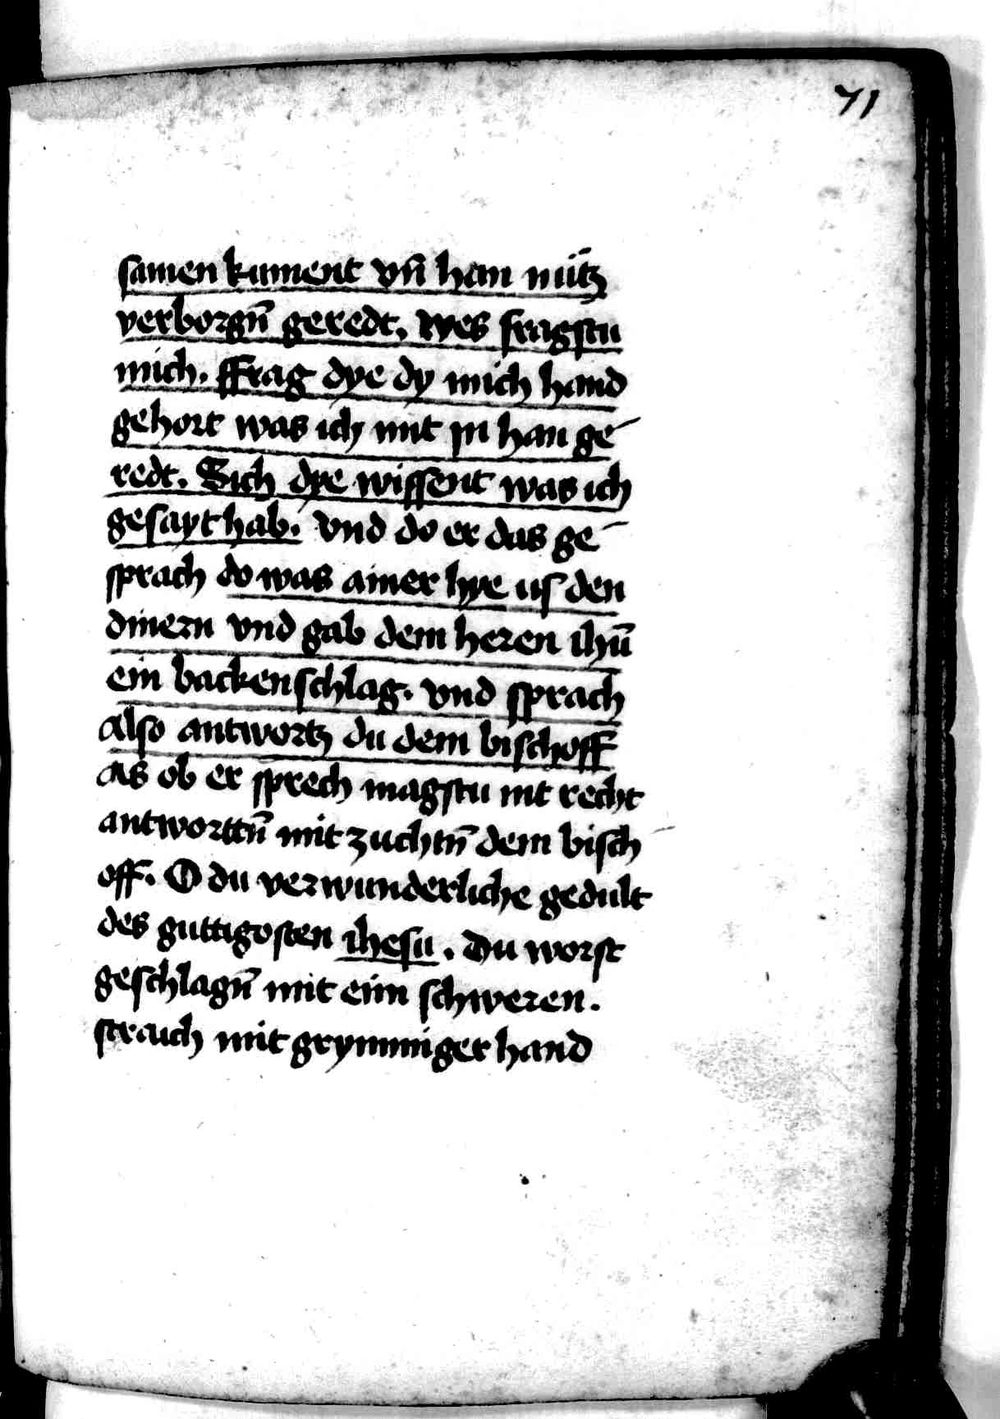 71
samen kument vn̄ han nütz
verborgn̄ geredt. wes fragstu
mich. ffrag dye dy mich hand
gehort was ich mit in han ge
redt. Sich dye wissent was ich
gesayt hab. vnd do er das ge
sprach do was ainer hye us den
dinern vnd gab dem heren ihū
ein backenschlag. vnd sprach
Also antwortz du dem bischoff
As ob er sprech magstu nit recht
antworttn̄ mit zuchtn̄ dem bisch
off. O du verwunderliche gedult
des guttigosten ihesu. Du worst
geschlagn̄ mit eim schweren.
straich mit grymmiger hand